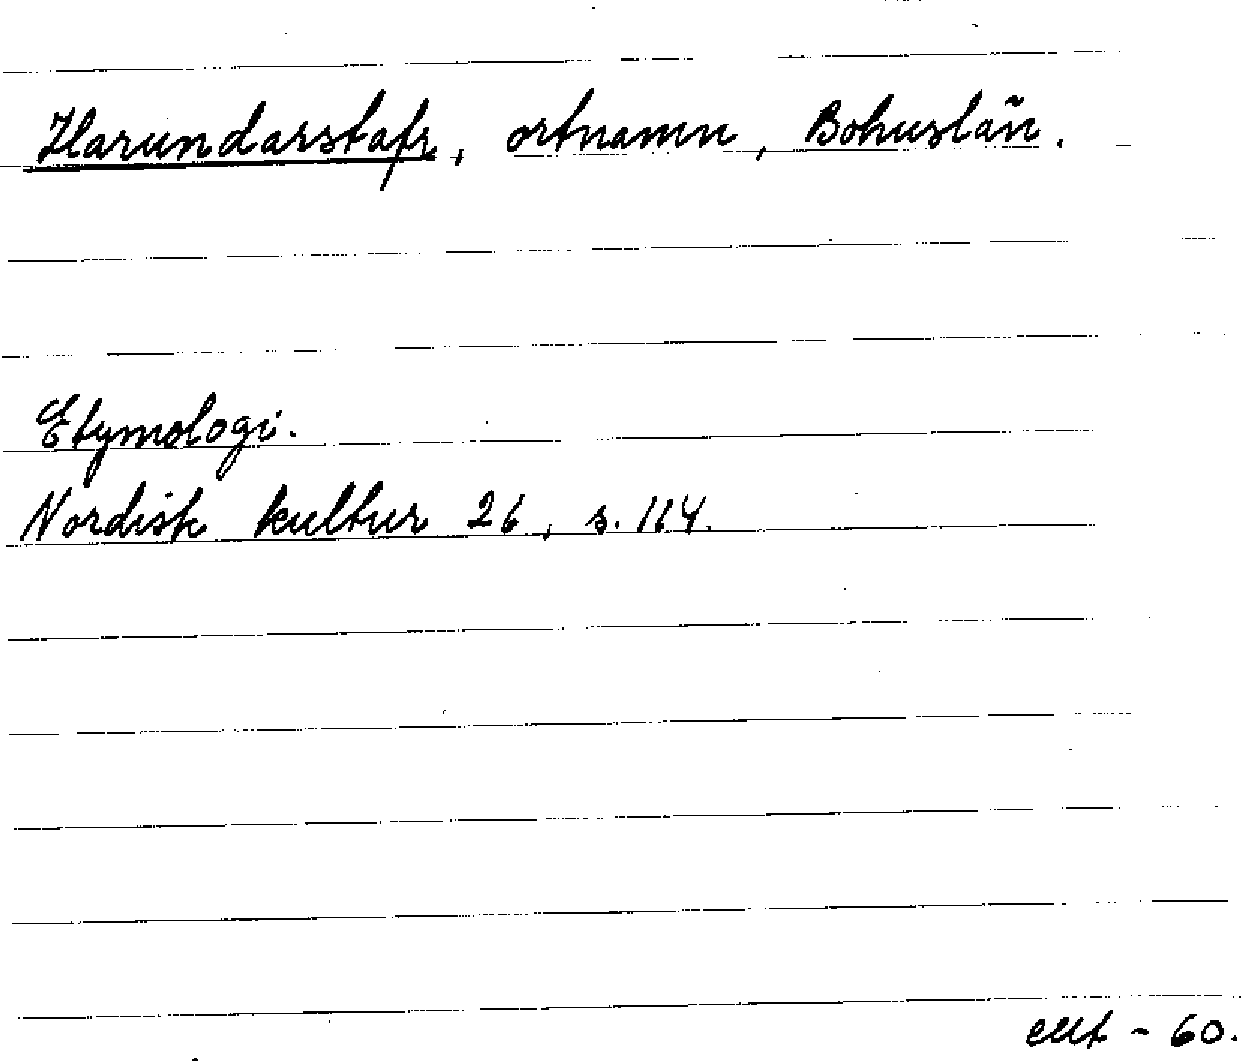 Harundarstafr, ortnamn, Bohuslän.
Etymologi.
Nordisk kultur 26, s. 114.
- 60.